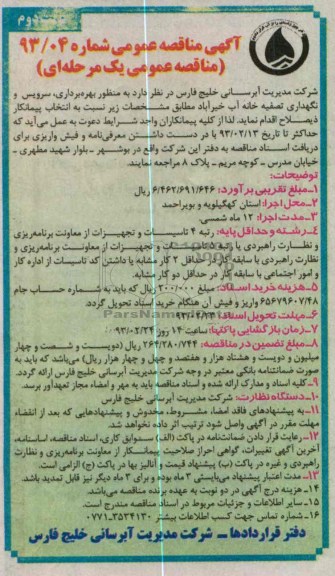 نوبت دوم
آگهی مناقصه عمومی شماره ۹۳/۰۴
(مناقصه عمومی یک مرحله‌ای)
شرکت مدیریت آبرسانی خلیج فارس در نظر دارد به منظور بهره‌برداری، سرویس و
نگهداری تصفیه خانه آب خیرآباد مطابق مشخصات زیر نسبت به انتخاب پیمانکار
ذیصلاح اقدام نماید. لذا از کلیه پیمانکاران واجد شرایط دعوت به عمل می‌آید که
حداکثر تا تاریخ ۹۳/۰۲/۱۳ با در دست داشتن معرفی‌نامه و فیش واریزی برای
دریافت اسناد مناقصه به دفتر این شرکت واقع در بوشهر ـ بلوار شهید مطهری ـ
خیابان مدرس ـ کوچه مریم ـ پلاک ۸ مراجعه نمایند.
توضیحات:
۱ـ مبلغ تقریبی برآورد: ۶/۴۶۲/۶۹۱/۶۴۶ ریال
۲ـ محل اجرا: استان کهگیلویه و بویراحمد
۳ـ مدت اجرا: ۱۲ ماه شمسی.
۴ـ رشته و حداقل پایه: رتبه ۴ تاسیسات و تجهیزات از معاونت برنامه‌ریزی
و نظارت راهبردی یا رتبه ۵ تاسیسات و تجهیزات از معاونت برنامه‌ریزی و
نظارت راهبردی با سابقه کار در حداقل ۲ کار مشابه یا داشتن کد تاسیسات از اداره کار
و امور اجتماعی با سابقه کار در حداقل دو کار مشابه.
۵ـ هزینه خرید اسناد: مبلغ ۲۰۰/۰۰۰ ریال که باید به شماره حساب جام
۶۵۶۷۹۶۰۷/۴۸ واریز و فیش آن هنگام خرید اسناد تحویل گردد.
۶ـ مهلت تحویل اسناد:
۷ـ زمان بازگشایی پاکتها: ساعت ۱۴ روز ۹۳/۰۲/۲۴
۸ـ مبلغ تضمین در مناقصه: ۲۶۴/۲۸۰/۷۴۴ ریال (دویست و شصت و چهار
میلیون و دویست و هشتاد هزار و هفتصد و چهل و چهار هزار ریال) می‌باشد که باید به
صورت ضمانتنامه بانکی معتبر در وجه شرکت مدیریت آبرسانی خلیج فارس ارائه گردد.
۹ـ کلیه اسناد و مدارک ارائه شده و اسناد مناقصه باید به مهر و امضاء مجاز تعهدآور برسد.
۱۰ـ دستگاه نظارت: شرکت مدیریت آبرسانی خلیج فارس
۱۱ـ به پیشنهادهای فاقد امضا، مشروط، مخدوش و پیشنهادهایی که بعد از انقضاء
مهلت مقرر در آگهی واصل شود ترتیب اثر داده نخواهد شد.
۱۲ـ رعایت قرار دادن ضمانتنامه در پاکت (الف) ـ سوابق کاری، اسناد مناقصه، اساسنامه،
آخرین آگهی تغییرات، گواهی احراز صلاحیت پیمانکار از معاونت برنامه‌ریزی و نظارت
راهبردی و غیره در پاکت (ب) پیشنهاد قیمت و آنالیز بها در پاکت (ج) الزامی است.
۱۳ـ مدت اعتبار پیشنهاد می‌بایستی ۳ ماه بوده و برای ۳ ماه دیگر نیز قابل تمدید باشد.
۱۴ـ هزینه درج آگهی در دو نوبت به عهده برنده مناقصه می‌باشد.
۱۵ـ سایر اطلاعات و جزئیات مربوط در اسناد مناقصه مندرج است.
۱۶ـ شماره تماس جهت کسب اطلاعات بیشتر ۳۵۳۴۱۳۰-۰۷۷۱
دفتر قراردادها ـ شرکت مدیریت آبرسانی خلیج فارس